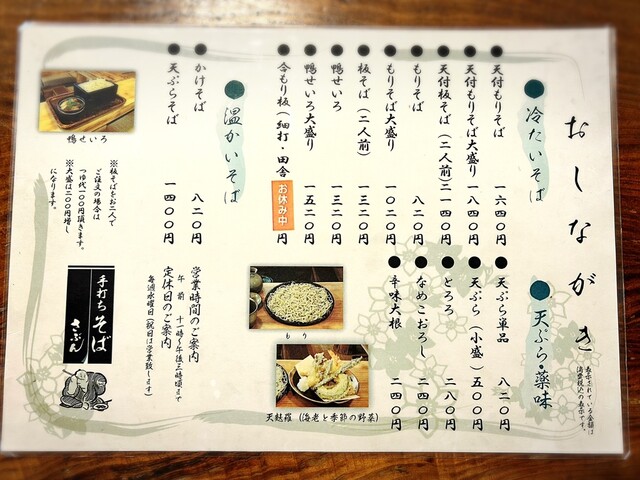 おしながき
表示されている金額は
消費税込の表示です。
冷たいそば
天付もりそば 一六四〇円
天付もりそば大盛り 一八四〇円
天付板そば(二人前) 二一四〇円
もりそば 八二〇円
もりそば大盛り 一〇二〇円
板そば(二人前) 一三二〇円
鴨せいろ 一三二〇円
鴨せいろ大盛り 一五二〇円
合もり板(細打・田舎) お休み中 円
天ぷら・薬味
天ぷら単品 八二〇円
天ぷら(小盛) 五〇〇円
とろろ 二八〇円
なめこおろし 二四〇円
辛味大根 二四〇円
もり
天麩羅(海老と季節の野菜)
温かいそば
かけそば 八二〇円
天ぷらそば 一四〇〇円
営業時間のご案内
午前十一時~午後三時頃まで
定休日のご案内
毎週水曜日(祝日は営業致します)
鴨せいろ
※板そばをお二人で
ご注文の場合は
つゆ代一〇〇円頂きます。
※大盛は二〇〇円増し
になります。
手打ちそば
さぶん